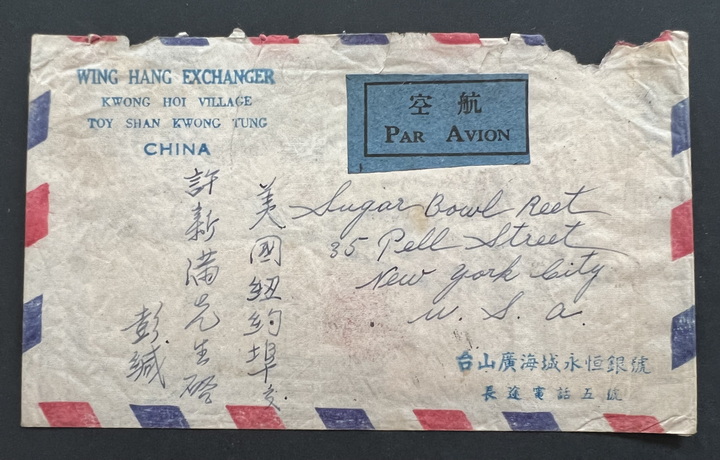 WING HANG EXCHANGER
KWONG HOI VILLAGE
TOY SHAN KWONG TUNG
CHINA
空航
PAR AVION
Sugar Bowl Rest
35 Pell Street
New York City
U. S. A.
美國紐約埠交
許新滿先生啓
彭緘
台山廣海城永恒銀號
長途電話五號